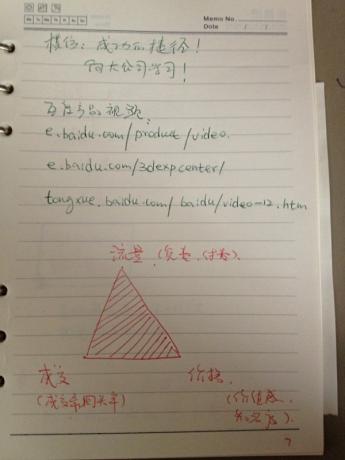 Memo No.
Date / /
模仿:成功的捷径!
向大公司学习!
百度产品视频:
e.baidu.com/product/video.
e.baidu.com/3dexpcenter/
tongxue.baidu.com/baidu/video-12.htm
流量(免费、付费).
成交 价格.
(成交率回头率) (价值感.
知名度).